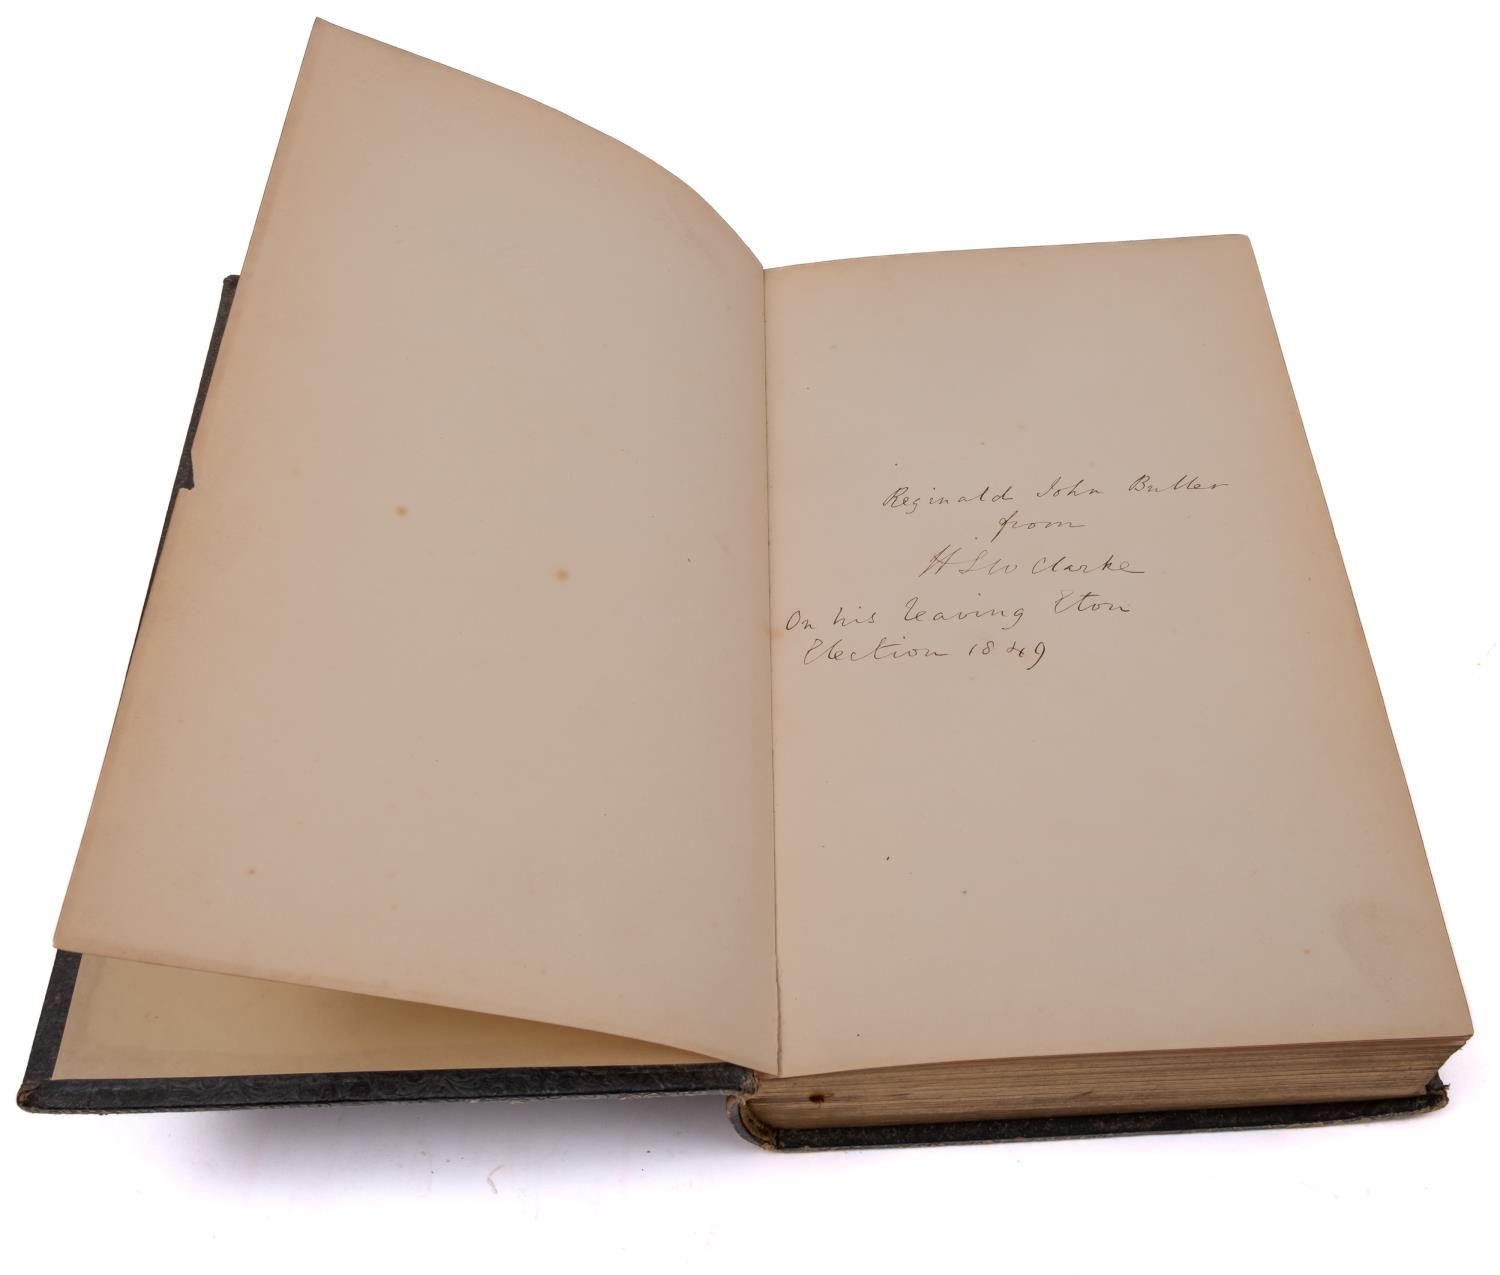 Reginald John Buller
from
H S W Clarke
On his leaving Eton
Election 1849